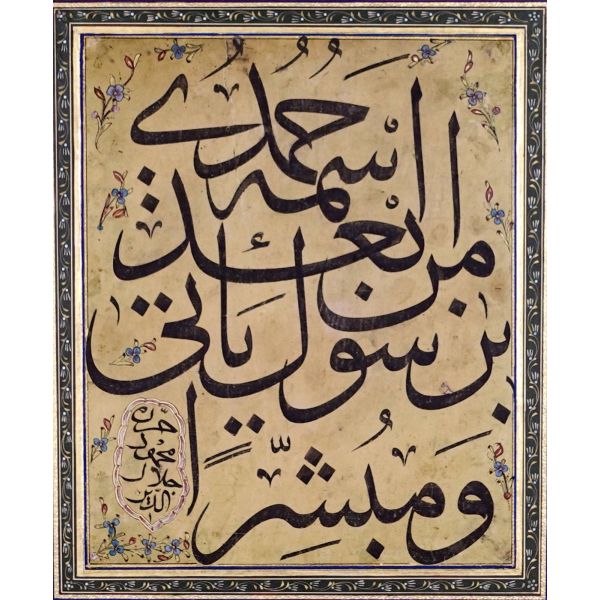 وَمُبَشِّرًا
برسول ياتى
من بعدى
اسمه احمد
حرره
محمود
جلال
الدين